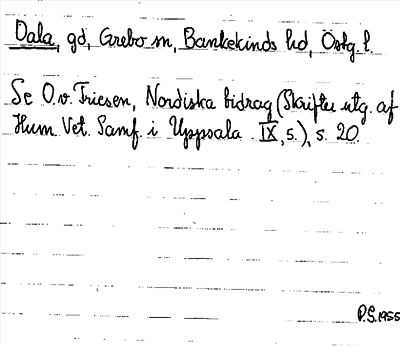 Dala, gd, Grebo sn, Bankekinds hd, Östg. l.
Se O. v. Friesen, Nordiska bidrag (Skrifter utg. af
Hum. Vet. Samf. i Uppsala. IX, 5.), s. 20.
D.S. 1955